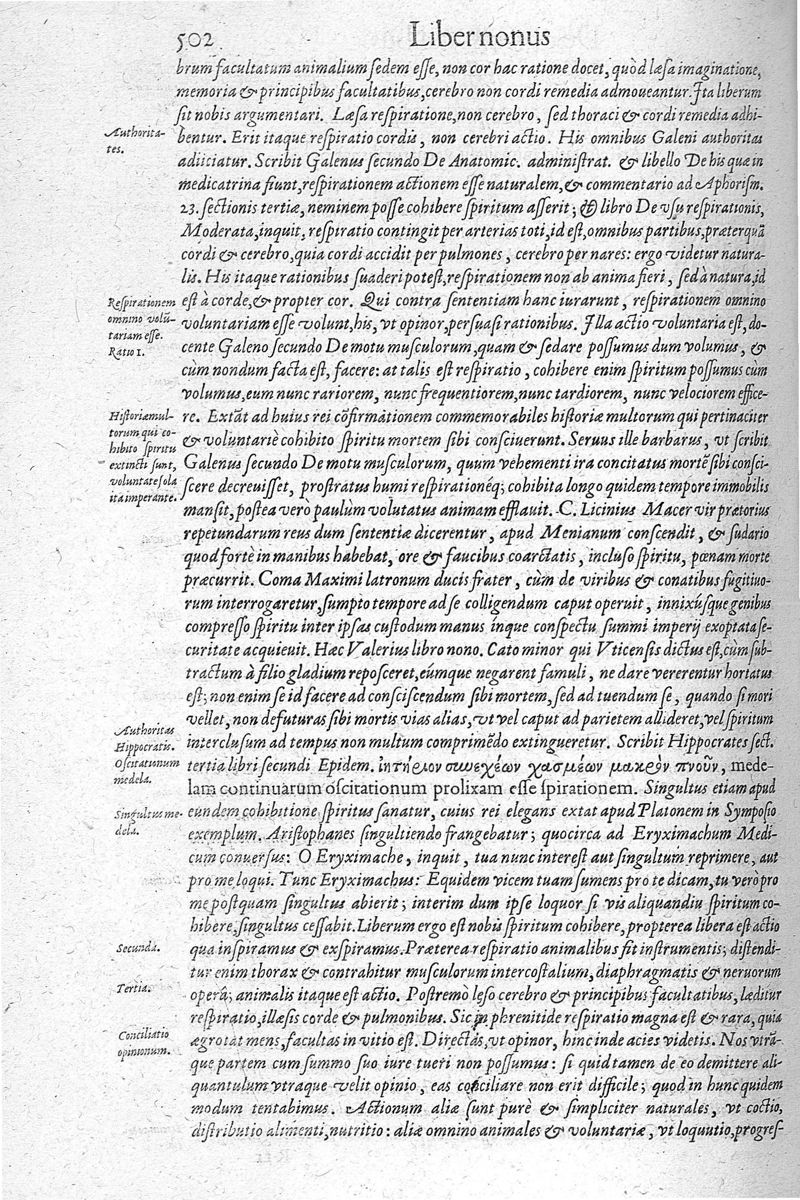 502 Liber nonus
brum facultatum animalium sedem esse, non cor hac ratione docet, quòd læsa imaginatione,
memoria & principibus facultatibus, cerebro non cordi remedia admoueantur. Ita liberum
sit nobis argumentari. Læsa respiratione, non cerebro, sed thoraci & cordi remedia adhi-
Authorita-
tes.
bentur. Erit itaque respiratio cordis, non cerebri actio. His omnibus Galeni authoritas
adiiciatur. Scribit Galenus secundo De Anatomic. administrat. & libello De his quæ in
medicatrina fiunt, respirationem actionem esse naturalem, & commentario ad Aphorism.
23. sectionis tertiæ, neminem posse cohibere spiritum asserit; & libro De vsu respirationis,
Moderata, inquit, respiratio contingit per arterias toti, id est, omnibus partibus, præterquã
cordi & cerebro, quia cordi accidit per pulmones, cerebro per nares: ergo videtur natura-
lis. His itaque rationibus suaderi potest, respirationem non ab anima fieri, sed à natura, id
Respirationem
omnino volū-
tariam esse.
Ratio 1.
est à corde, & propter cor. Qui contra sententiam hanc iurarunt, respirationem omnino
voluntariam esse volunt, his, vt opinor, persuasi rationibus. Illa actio voluntaria est, do-
cente Galeno secundo De motu musculorum, quam & sedare possumus dum volumus, &
cùm nondum facta est, facere: at talis est respiratio, cohibere enim spiritum possumus cùm
volumus, eum nunc rariorem, nunc frequentiorem, nunc tardiorem, nunc velociorem effice-
Historiæ mul-
torum qui co-
hibito spiritu
extincti sunt,
voluntate sola
ita imperante.
re. Extãt ad huius rei cõfirmationem commemorabiles historiæ multorum qui pertinaciter
& voluntariè cohibito spiritu mortem sibi consciuerunt. Seruus ille barbarus, vt scribit
Galenus secundo De motu musculorum, quum vehementi ira concitatus mortē sibi consci-
scere decreuisset, prostratus humi respirationéq; cohibita longo quidem tempore immobilis
mansit, postea verò paulùm volutatus animam efflauit. C. Licinius Macer vir prætorius
repetundarum reus dum sententiæ dicerentur, apud Menianum conscendit, & sudario
quod fortè in manibus habebat, ore & faucibus coarctatis, incluso spiritu, pœnam morte
præcurrit. Coma Maximi latronum ducis frater, cùm de viribus & conatibus fugitiuo-
rum interrogaretur, sumpto tempore ad se colligendum caput operuit, innixúsque genibus
compresso spiritu inter ipsas custodum manus ínque conspectu summi imperij exoptata se-
curitate acquieuit. Hæc Valerius libro nono. Cato minor qui Vticensis dictus est, cùm sub-
tractum à filio gladium reposceret, eúmque negarent famuli, ne dare vererentur hortatus
est; non enim se id facere ad consciscendum sibi mortem, sed ad tuendum se, quando si mori
vellet, non defuturas sibi mortis vias alias, vt vel caput ad parietem allideret, vel spiritum
Authoritas
Hippocratis.
Oscitationum
medela.
interclusum ad tempus non multum comprimēdo extingueretur. Scribit Hippocrates sect.
tertia libri secundi Epidem. ἰητήριον συνεχέων χασμέων μακρὸν πνοῦν, mede-
lam continuarum oscitationum prolixam esse spirationem. Singultus etiam apud
Singultus me-
dela.
eundem cohibitione spiritus sanatur, cuius rei elegans extat apud Platonem in Symposio
exemplum. Aristophanes singultiendo frangebatur; quocirca ad Eryximachum Medi-
cum conuersus: O Eryximache, inquit, tua nunc interest aut singultum reprimere, aut
pro me loqui. Tunc Eryximachus: Equidem vicem tuam sumens pro te dicam, tu verò pro
me postquam singultus abierit; interim dum ipse loquor si vis aliquandiu spiritum co-
hibere, singultus cessabit. Liberum ergo est nobis spiritum cohibere, propterea libera est actio
Secunda.
qua inspiramus & exspiramus. Præterea respiratio animalibus fit instrumentis; distendi-
tur enim thorax & contrahitur musculorum intercostalium, diaphragmatis & neruorum
Tertia.
operâ; animalis itaque est actio. Postremò leso cerebro & principibus facultatibus, læditur
respiratio, illæsis corde & pulmonibus. Sic in phrenitide respiratio magna est & rara, quia
Conciliatio
opinionum.
ægrotat mens, facultas in vitio est. Directas, vt opinor, hinc inde acies videtis. Nos vtrã-
que partem cum summo suo iure tueri non possumus: si quid tamen de eo demittere ali-
quantulum vtraque velit opinio, eas conciliare non erit difficile; quod in hunc quidem
modum tentabimus. Actionum aliæ sunt purè & simpliciter naturales, vt coctio,
distributio alimenti, nutritio: aliæ omnino animales & voluntariæ, vt loquutio, progres-